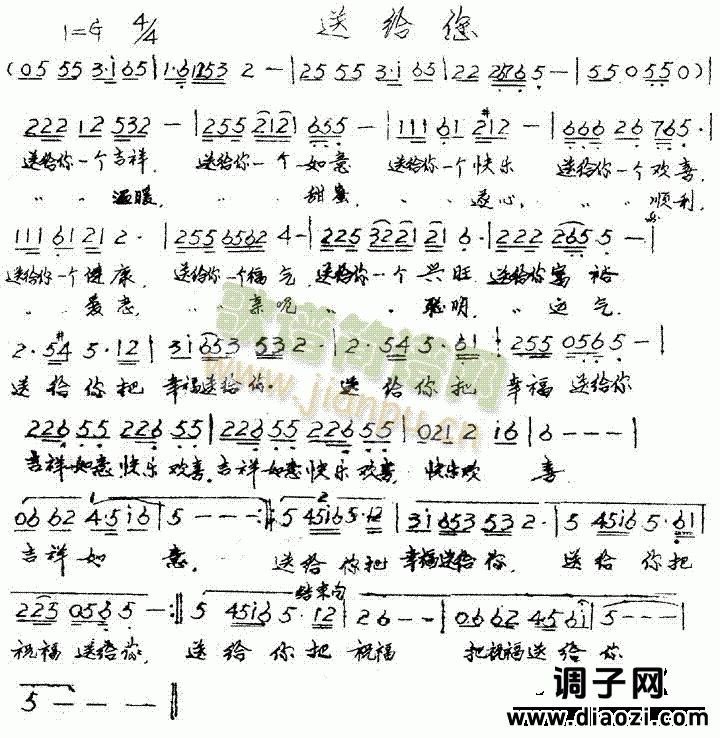 送给您
1=G 4/4
(05 55 3·i 65 | 1·6 1253 2 - | 25 55 3·i 65 | 22 2576 5 - | 55 0 55 0) |
222 12 532 - | 255 212 655 - | 111 61 212 - | 666 26 765 · |
送给你一个吉祥, 送给你一个如意 送给你一个快乐 送给你一个欢喜,
〃 〃 温暖, 〃 〃 甜蜜 〃 〃 遂心, 〃 〃 顺利,
111 61 21 2 · | 255 6562 4 - | 225 3221 21 6 · | 222 265 5 - |
送给你一个健康, 送给你一个福气, 送给你一个兴旺, 送给你富裕
〃 〃 〃 〃 亲昵 〃 〃 聪明, 〃 运气.
2 · 54 5 · 12 | 3i653 532 · | 2 · 54 5 · 61 | 255 0565 - |
送给你把幸福送给你. 送给你把幸福送给你
226 55 226 55 | 226 55 226 55 | 021 2 i6 | 6 - - - |
吉祥如意快乐欢喜, 吉祥如意快乐欢喜, 快乐欢喜
1 2
06 62 4·5i6 | 5 - - - :|| 5 45i65 · 12 | 3i653 532 · | 5 45i6 5 · 61 |
吉祥如意. 送给你把幸福送给你, 送给你把
结束句
223 0565 - :|| 5 45i6 5 · 12 | 26 - - | 0662 456i | 5 - - - |
祝福送给你, 送给你把祝福 把祝福送给你
5 - - - ||
歌谱简谱网
www.jianpu.cn
调子网
www.diaozi.com